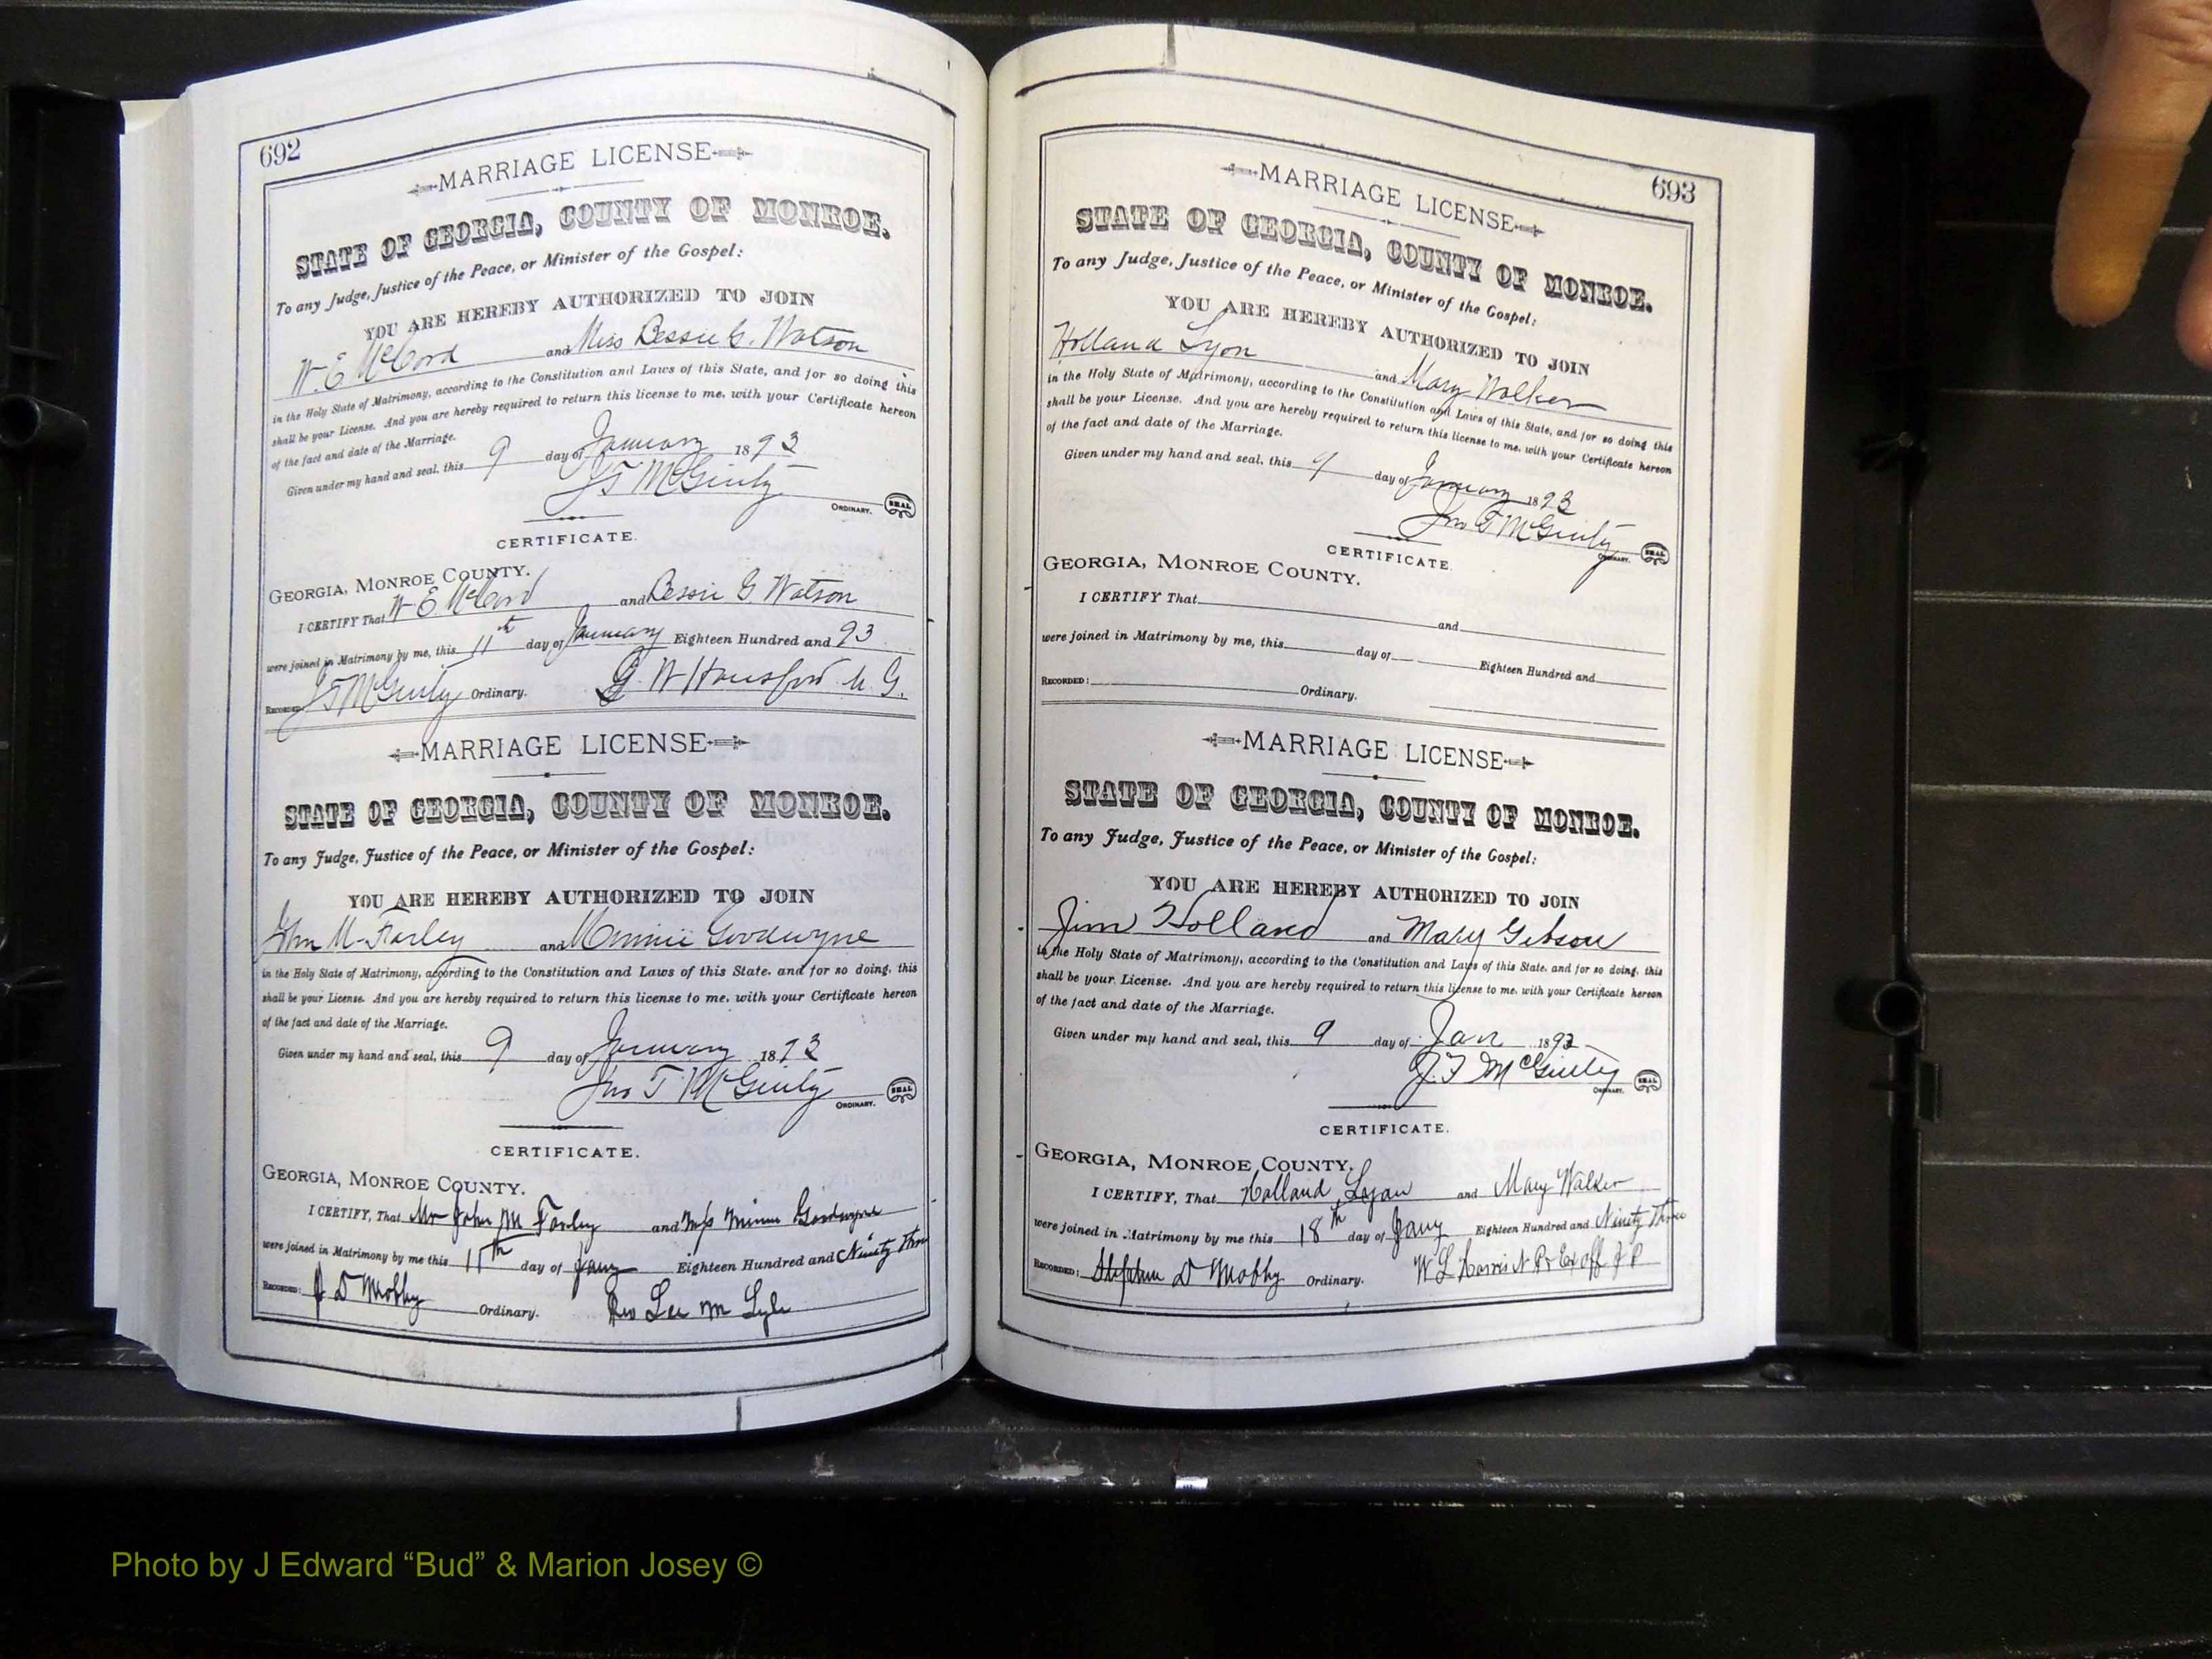 692
MARRIAGE LICENSE
STATE OF GEORGIA, COUNTY OF MONROE.
To any Judge, Justice of the Peace, or Minister of the Gospel:
YOU ARE HEREBY AUTHORIZED TO JOIN
W. E McCord and Miss Bessie G. Watson
in the Holy State of Matrimony, according to the Constitution and Laws of this State, and for so doing this
shall be your License. And you are hereby required to return this license to me, with your Certificate hereon
of the fact and date of the Marriage.
Given under my hand and seal, this 9 day of January 1893
J T McGinty
ORDINARY. SEAL
CERTIFICATE.
GEORGIA, MONROE COUNTY.
I CERTIFY That W E McCord and Bessie G. Watson
were joined in Matrimony by me, this 11th day of January Eighteen Hundred and 93
RECORDED: J T McGinty Ordinary. G. W Hansford M. G.
MARRIAGE LICENSE
STATE OF GEORGIA, COUNTY OF MONROE.
To any Judge, Justice of the Peace, or Minister of the Gospel:
YOU ARE HEREBY AUTHORIZED TO JOIN
John M. Farley and Minnie Goodwyne
in the Holy State of Matrimony, according to the Constitution and Laws of this State, and for so doing, this
shall be your License. And you are hereby required to return this license to me, with your Certificate hereon
of the fact and date of the Marriage.
Given under my hand and seal, this 9 day of January 1893
Jno T. McGinty
ORDINARY. SEAL
CERTIFICATE.
GEORGIA, MONROE COUNTY.
I CERTIFY, That Mr John M Farley and Miss Minnie Goodwyne
were joined in Matrimony by me this 11th day of Jany Eighteen Hundred and Ninety Three
RECORDED: D Mobly Ordinary. Rev Lee M Lyle
693
MARRIAGE LICENSE
STATE OF GEORGIA, COUNTY OF MONROE.
To any Judge, Justice of the Peace, or Minister of the Gospel:
YOU ARE HEREBY AUTHORIZED TO JOIN
Holland Lyon and Mary Walker
in the Holy State of Matrimony, according to the Constitution and Laws of this State, and for so doing this
shall be your License. And you are hereby required to return this license to me, with your Certificate hereon
of the fact and date of the Marriage.
Given under my hand and seal, this 9 day of January 1893
Jno T McGinty
ORDINARY. SEAL
CERTIFICATE.
GEORGIA, MONROE COUNTY.
I CERTIFY That
and
were joined in Matrimony by me, this day of Eighteen Hundred and
RECORDED: Ordinary.
MARRIAGE LICENSE
STATE OF GEORGIA, COUNTY OF MONROE.
To any Judge, Justice of the Peace, or Minister of the Gospel:
YOU ARE HEREBY AUTHORIZED TO JOIN
Jim Holland and Mary Gibson
in the Holy State of Matrimony, according to the Constitution and Laws of this State, and for so doing, this
shall be your License. And you are hereby required to return this license to me, with your Certificate hereon
of the fact and date of the Marriage.
Given under my hand and seal, this 9 day of Jan 1893
J. T McGinty
ORDINARY. SEAL
CERTIFICATE.
GEORGIA, MONROE COUNTY.
I CERTIFY, That Holland Lyon and Mary Walker
were joined in Matrimony by me this 18th day of Jany Eighteen Hundred and Ninety Three
RECORDED: Stephen D Mobly Ordinary. W L Harris N P & Ex off J P
Photo by J Edward “Bud” & Marion Josey ©